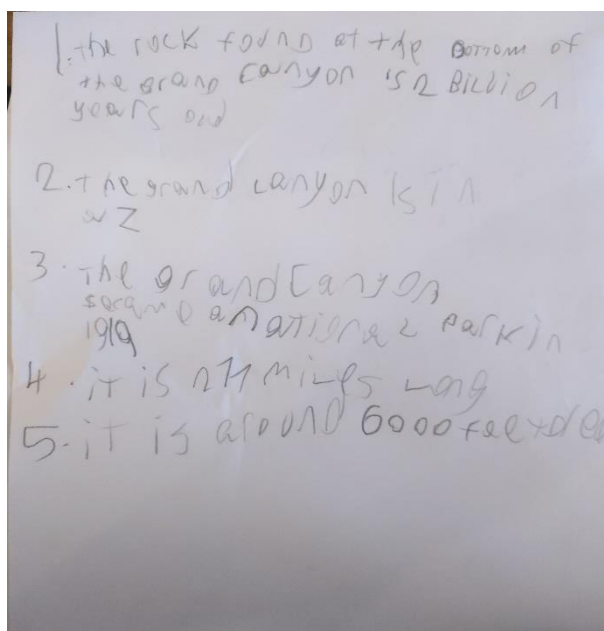 1. the rock found at the Bottom of
the grand Canyon is 2 Billion
years old
2. the grand canyon is in
aZ
3. The grand Canyon
became a national park in
1919
4. it is 277 miles Long
5. it is around 6000 feet dee